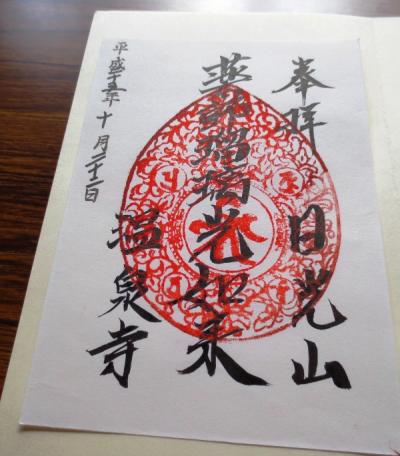 奉拝 日光山
薬師瑠璃光如来
温泉寺
平成二十五年十月二十二日